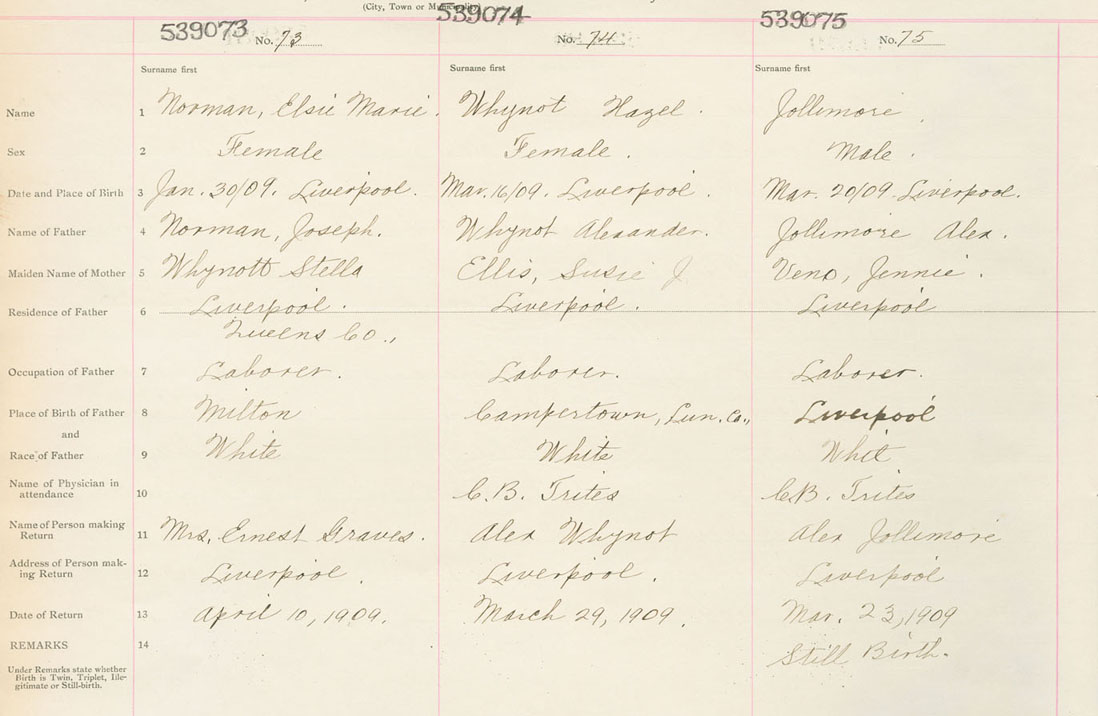 (City, Town or Municipality)
539073 No. 73
539074 No. 74
539075 No. 75
Surname first Surname first Surname first
Name 1 Norman, Elsie Marie. Whynot Hazel. Jollimore.
Sex 2 Female Female. Male.
Date and Place of Birth 3 Jan. 30/09. Liverpool. Mar. 16/09. Liverpool. Mar. 20/09. Liverpool.
Name of Father 4 Norman, Joseph. Whynot Alexander. Jollimore Alex.
Maiden Name of Mother 5 Whynott Stella Ellis, Susie J Veno, Jennie.
Residence of Father 6 Liverpool. Liverpool. Liverpool
Queens Co.,
Occupation of Father 7 Laborer. Laborer. Laborer.
Place of Birth of Father 8 Milton Campertown, Lun. Co., Liverpool
and
Race of Father 9 White White Whit
Name of Physician in
attendance 10 C. B. Trites C.B. Trites
Name of Person making
Return 11 Mrs. Ernest Graves. Alex Whynot Alex Jollimore
Address of Person mak-
ing Return 12 Liverpool. Liverpool. Liverpool
Date of Return 13 April 10, 1909. March 29, 1909. Mar. 23, 1909
REMARKS 14 Still Birth.
Under Remarks state whether
Birth is Twin, Triplet, Ille-
gitimate or Still-birth.